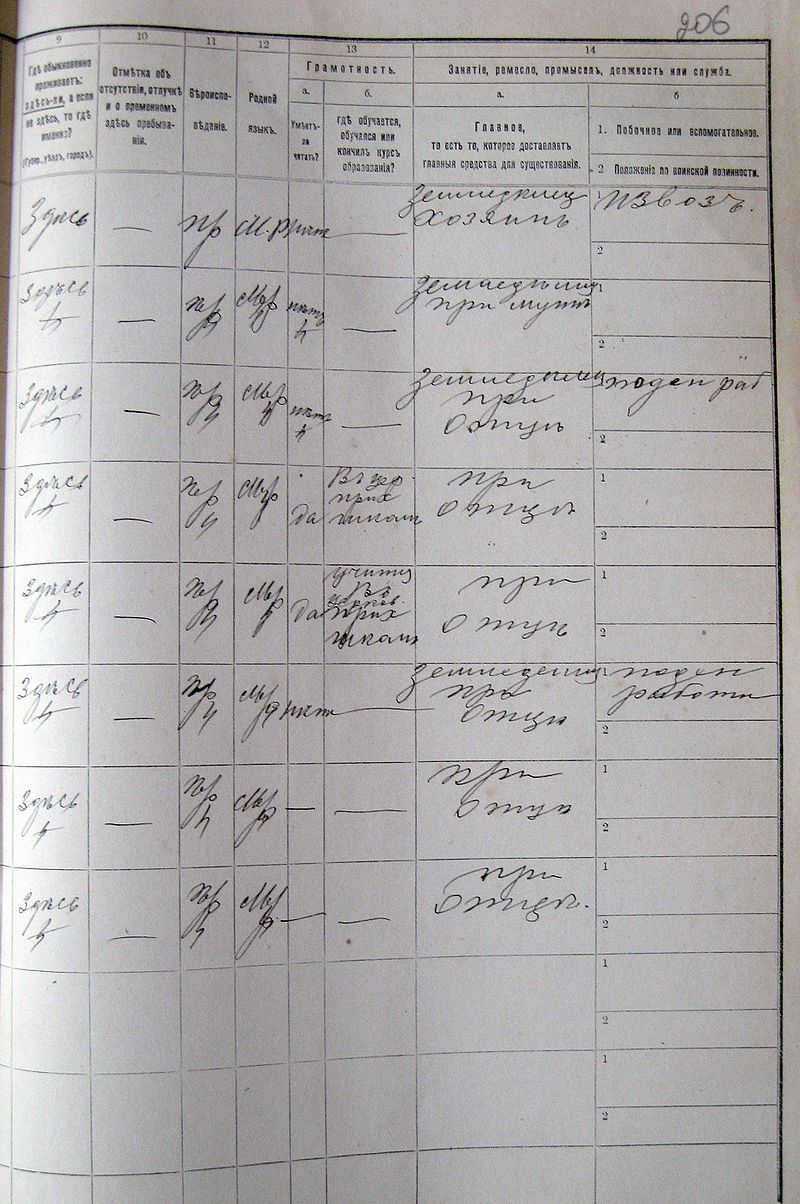 206
9 10 11 12 13 14
Гдѣ обыкновенно
проживаетъ:
здѣсь-ли, а если
не здѣсь, то гдѣ
именно?
(Губер., уѣзд., городъ).
Отмѣтка объ
отсутствіи, отлучкѣ
и о временномъ
здѣсь пребыва-
ніи.
Вѣроиспо-
вѣданіе.
Родной
языкъ.
Грамотность.
а.
Умѣетъ-
ли
читать?
б.
гдѣ обучается,
обучался или
кончилъ курсъ
образованія?
Занятіе, ремесло, промыселъ, должность или служба.
а.
Главное,
то есть то, которое доставляетъ
главныя средства для существованія.
б
1. Побочное или вспомогательное.
2 Положеніе по воинской повинности.
Здѣсь — пр М.р —
Земледѣлец
Хозяинъ
извозъ.
2
Здѣсь — пр Мр нѣтъ —
Земледѣлец
при мужѣ
1
2
Здѣсь — пр Мр нѣтъ —
Земледѣлец
при
отцѣ
поден раб
2
Здѣсь — пр Мр да
Въ цер
прих
школѣ
при
отцѣ
1
2
Здѣсь — пр Мр да
учится
Въ
церков.
прих
школѣ
при
отцѣ
1
2
Здѣсь — пр Мр нѣт —
Земледелец
при
отцѣ
поден
работа
2
Здѣсь — пр Мр — —
при
отцѣ
1
2
Здѣсь — пр Мр — —
при
отцѣ.
1
2
1
2
1
2